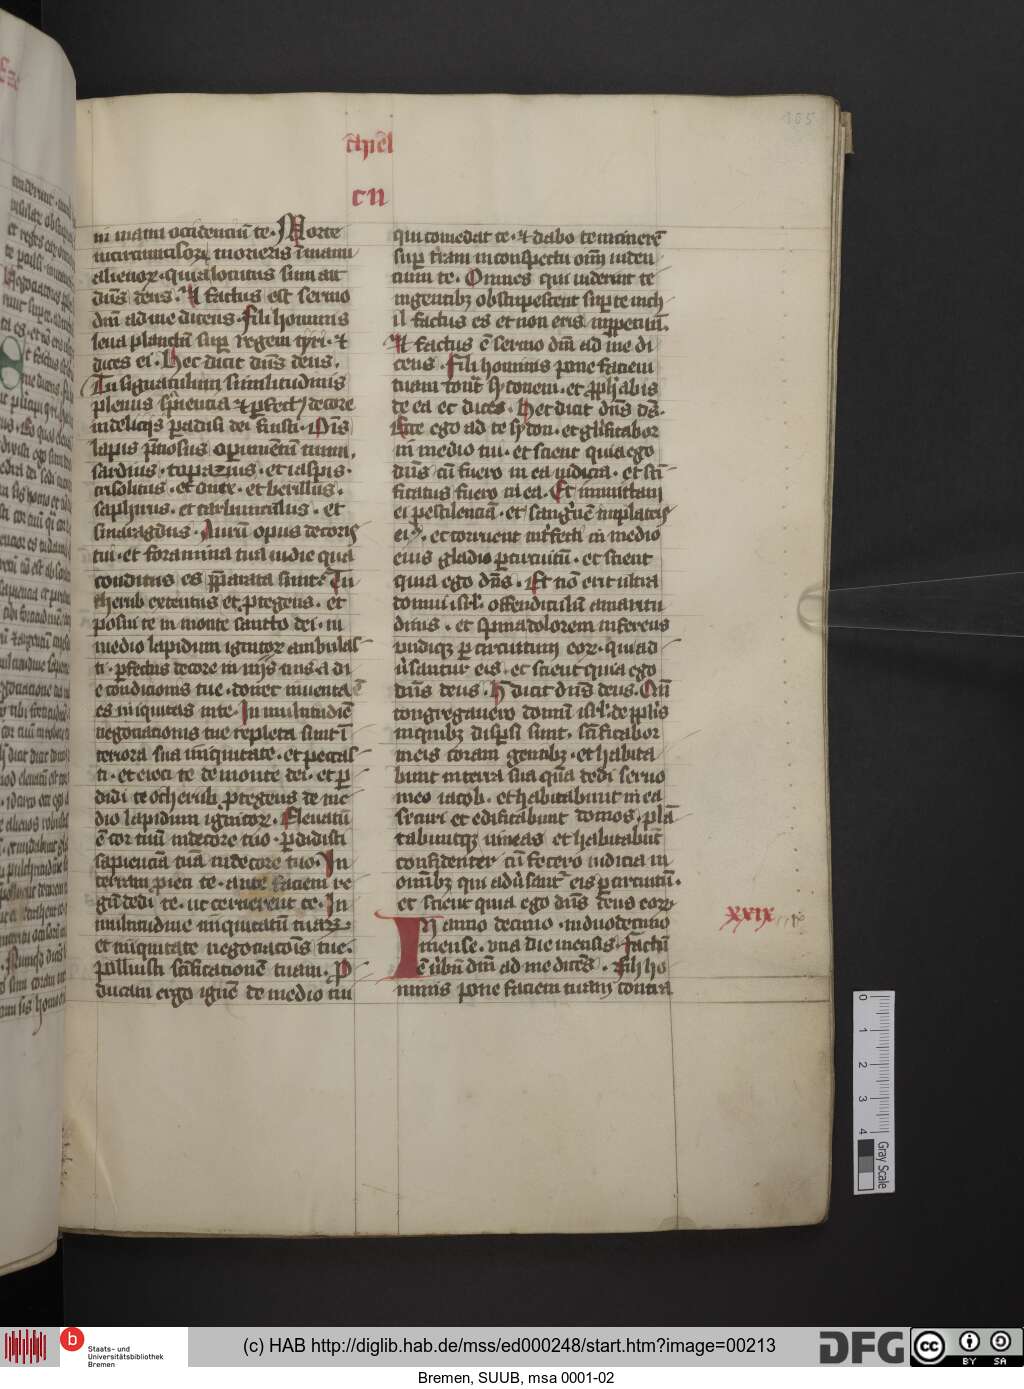 chiel
cu
in manu occidenciū te. Morte
incircumcisoꝝ morieris ī manu
alienoꝝ. quia locutus sum ait
dn̄s deus. Et factus est sermo
dn̄i ad me dicens. fili hominis
leua planctū suꝑ regem tyri. et
dices ei. Hec dicit dn̄s deus.
Tu signaculum similitudinis
plenus sapiencia et ꝑfectus decore
in delicijs paradisi dei fuisti. Om̄s
lapis p̄ciosus operimentū tuum.
sardius. topazius. et iaspis.
crisolitus. et onix. et berillus.
saphirus. et carbunculus. et
smaragdus. Aurū opus decoris
tui. et foramina tua in die qua
conditus es p̄parata sunt. Tu
cherub extentus et ꝓtegens. et
posui te in monte sancto dei. in
medio lapidum ignitoꝝ ambulas
ti. ꝑfectus decore in vijs tuis a di
e condicionis tue. donec inuenta ē
es iniquitas in te. In multitudīe
negociacionis tue repleta sunt ī
teriora tua iniquitate. et peccas
ti. et eieci te de monte dei. et ꝑ
didi te o cherub ꝓtegens de me
dio lapidum ignitoꝝ. Eleuatū
ē cor tuū in decore tuo. ꝑdidisti
sapienciā tuā in decore tuo. In
terram pieci te. ante faciem re
gū dedi te. ut cernerent te. In
multitudine iniquitatū tuaꝝ
et iniquitate negociacōis tue.
polluisti sc̄ificacionē tuam. P
ducam ergo ignē de medio tui
qui comedat te. et dabo te in cinerē
suꝑ terram in conspectu om̄i viden
cium te. Omnes qui viderint te
in gentibꝫ obstupescent suꝑ te nich
il factus es et non eris in ꝑpetuū.
Et factus ē sermo dn̄i ad me di
cens. fili hominis pone faciem
tuam contra sydonem. et ꝓphabis
de ea et dices. Hec dicit dn̄s ds̄.
Ecce ego ad te sydon. et glificabor
in medio tui. et scient quia ego
dn̄s cū fuero in ea iudicia. et sc̄i
ficatus fuero in ea. Et inmittam
ei pestilenciā. et sanguinē in plateis
eiꝰ. et corruent int̄fecti in medio
eius gladio ꝑ circuitū. et scient
quia ego dn̄s. Et nō erit ultra
domui isrl̄ offendiculū amaritu
dinis. et spina dolorem inferens
undiqꝫ ꝑ circuitum eoꝝ. qui ad
ūsantur eis. et scient quia ego
dn̄s deus. H̄ dicit dn̄s deus. Qn̄
congregauero domū isrl̄ de pplis
in quibꝫ disꝑsi sunt. sc̄ificabor
in eis coram gentibꝫ. et habita
bunt in terra sua quā dedi seruo
meo iacob. et habitabunt in ea
securi et edificabunt domos. plā
tabuntqꝫ vineas et habitabūt
confidenter cū fecero iudicia in
om̄ibꝫ qui adūsant eis ꝑ circuitū.
et scient quia ego dn̄s deus eoꝝ
In anno decimo. in duodecimo
mense. una die mensis. factū
ē ūbū dn̄i ad me dicēs. Fili ho
minis pone faciem tuam contra
xxix
0 1 2 3 4
Gray Scale
b
Staats- und
Universitätsbibliothek
Bremen
(c) HAB http://diglib.hab.de/mss/ed000248/start.htm?image=00213
DFG
cc
BY SA
Bremen, SUUB, msa 0001-02